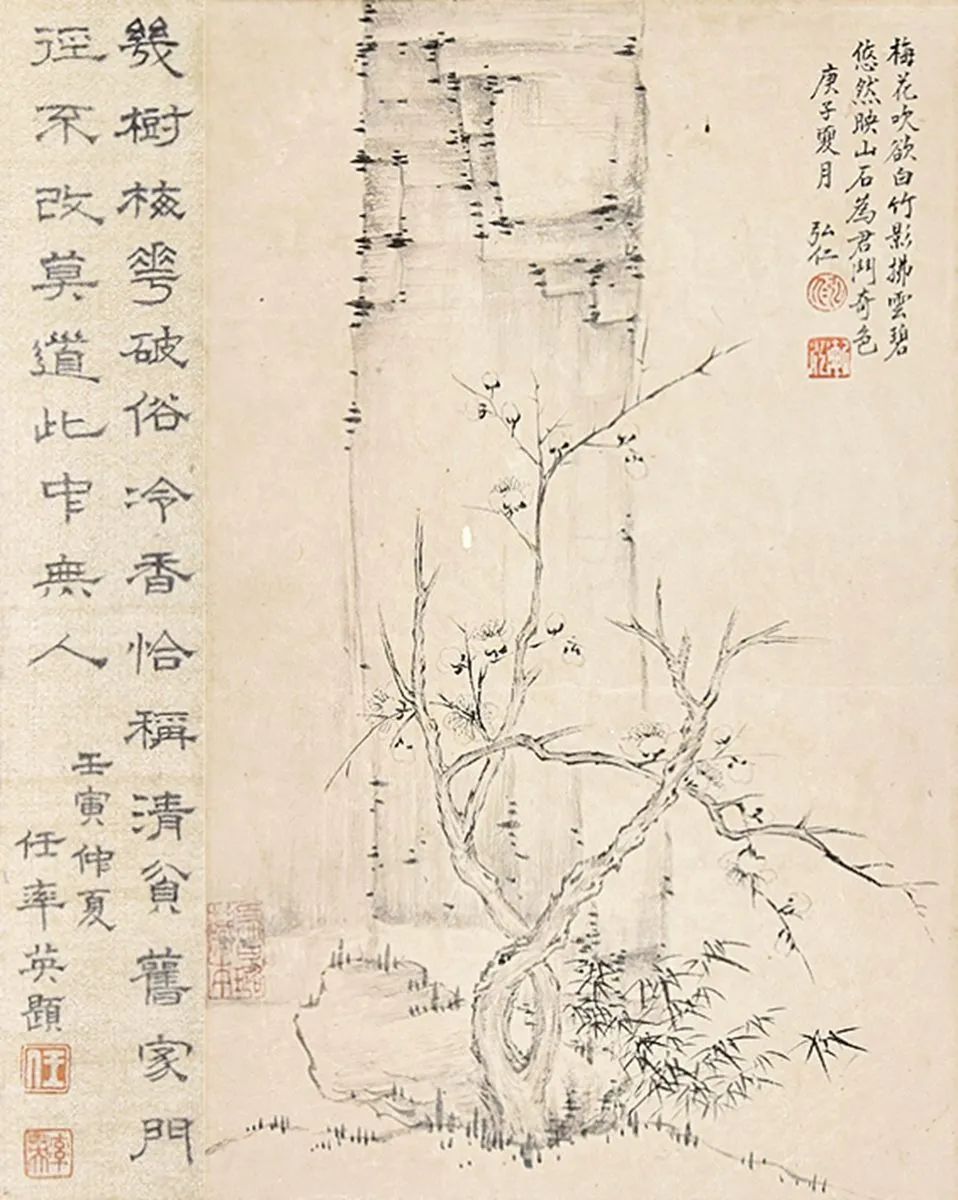 梅花吹欲白竹影拂雲碧
悠然映山石為君鬥奇色
庚子夏月 弘仁
幾樹梅華破俗冷香恰稱清貧舊家門
徑不改莫道此中無人
壬寅仲夏
任率英題